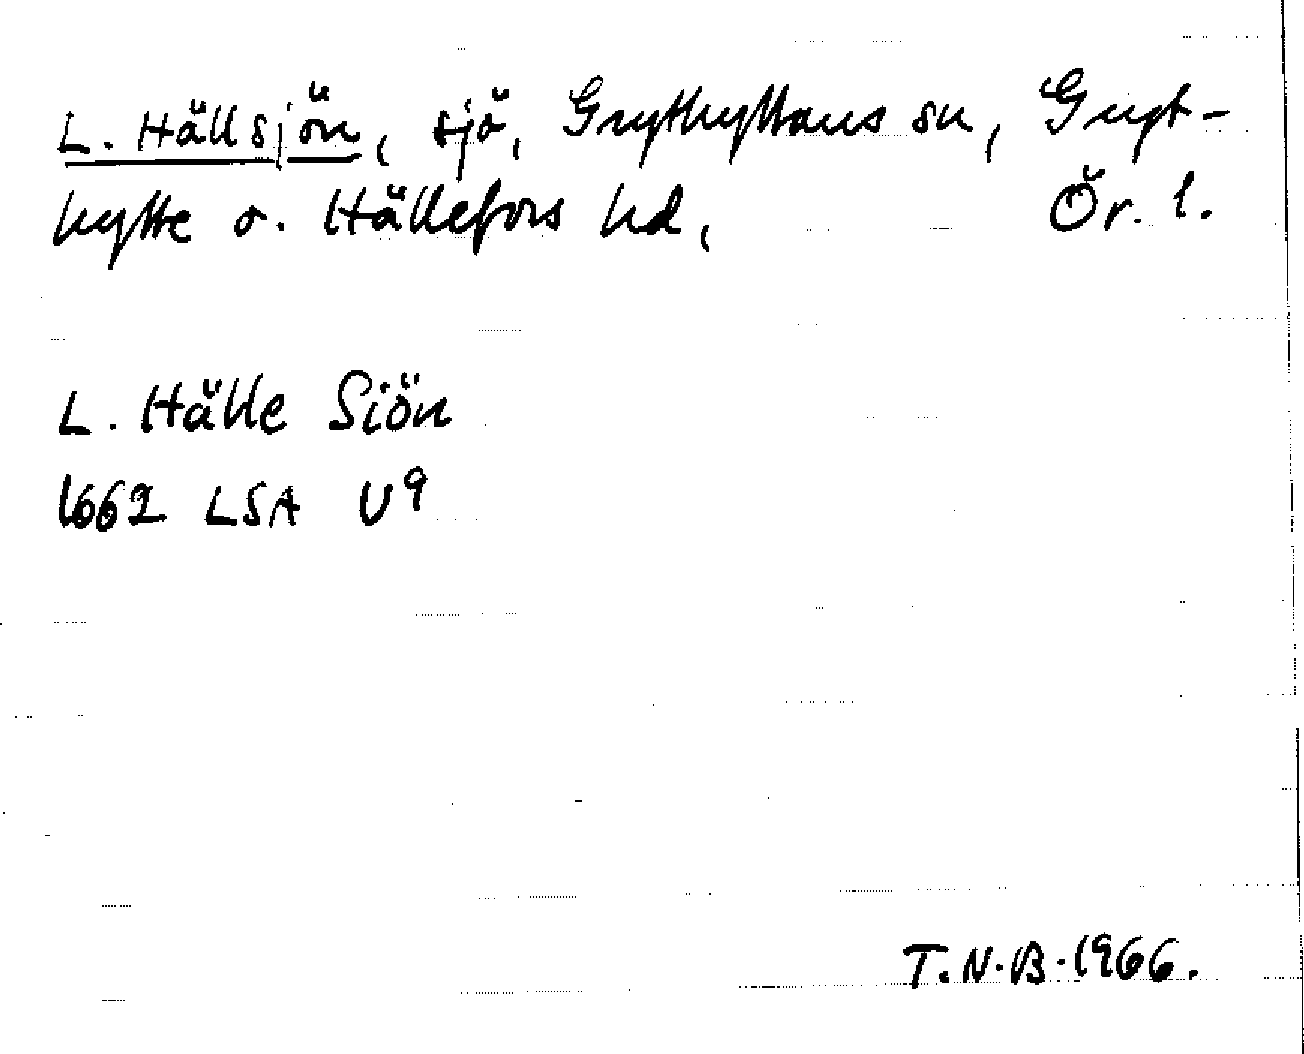 L. Hällsjön, sjö, Grythyttans sn, Gryt-
hytte o. Hällefors hd, Ör. l.
L. Hälle Siön
1662 LSA U9
T.N.B. 1966.